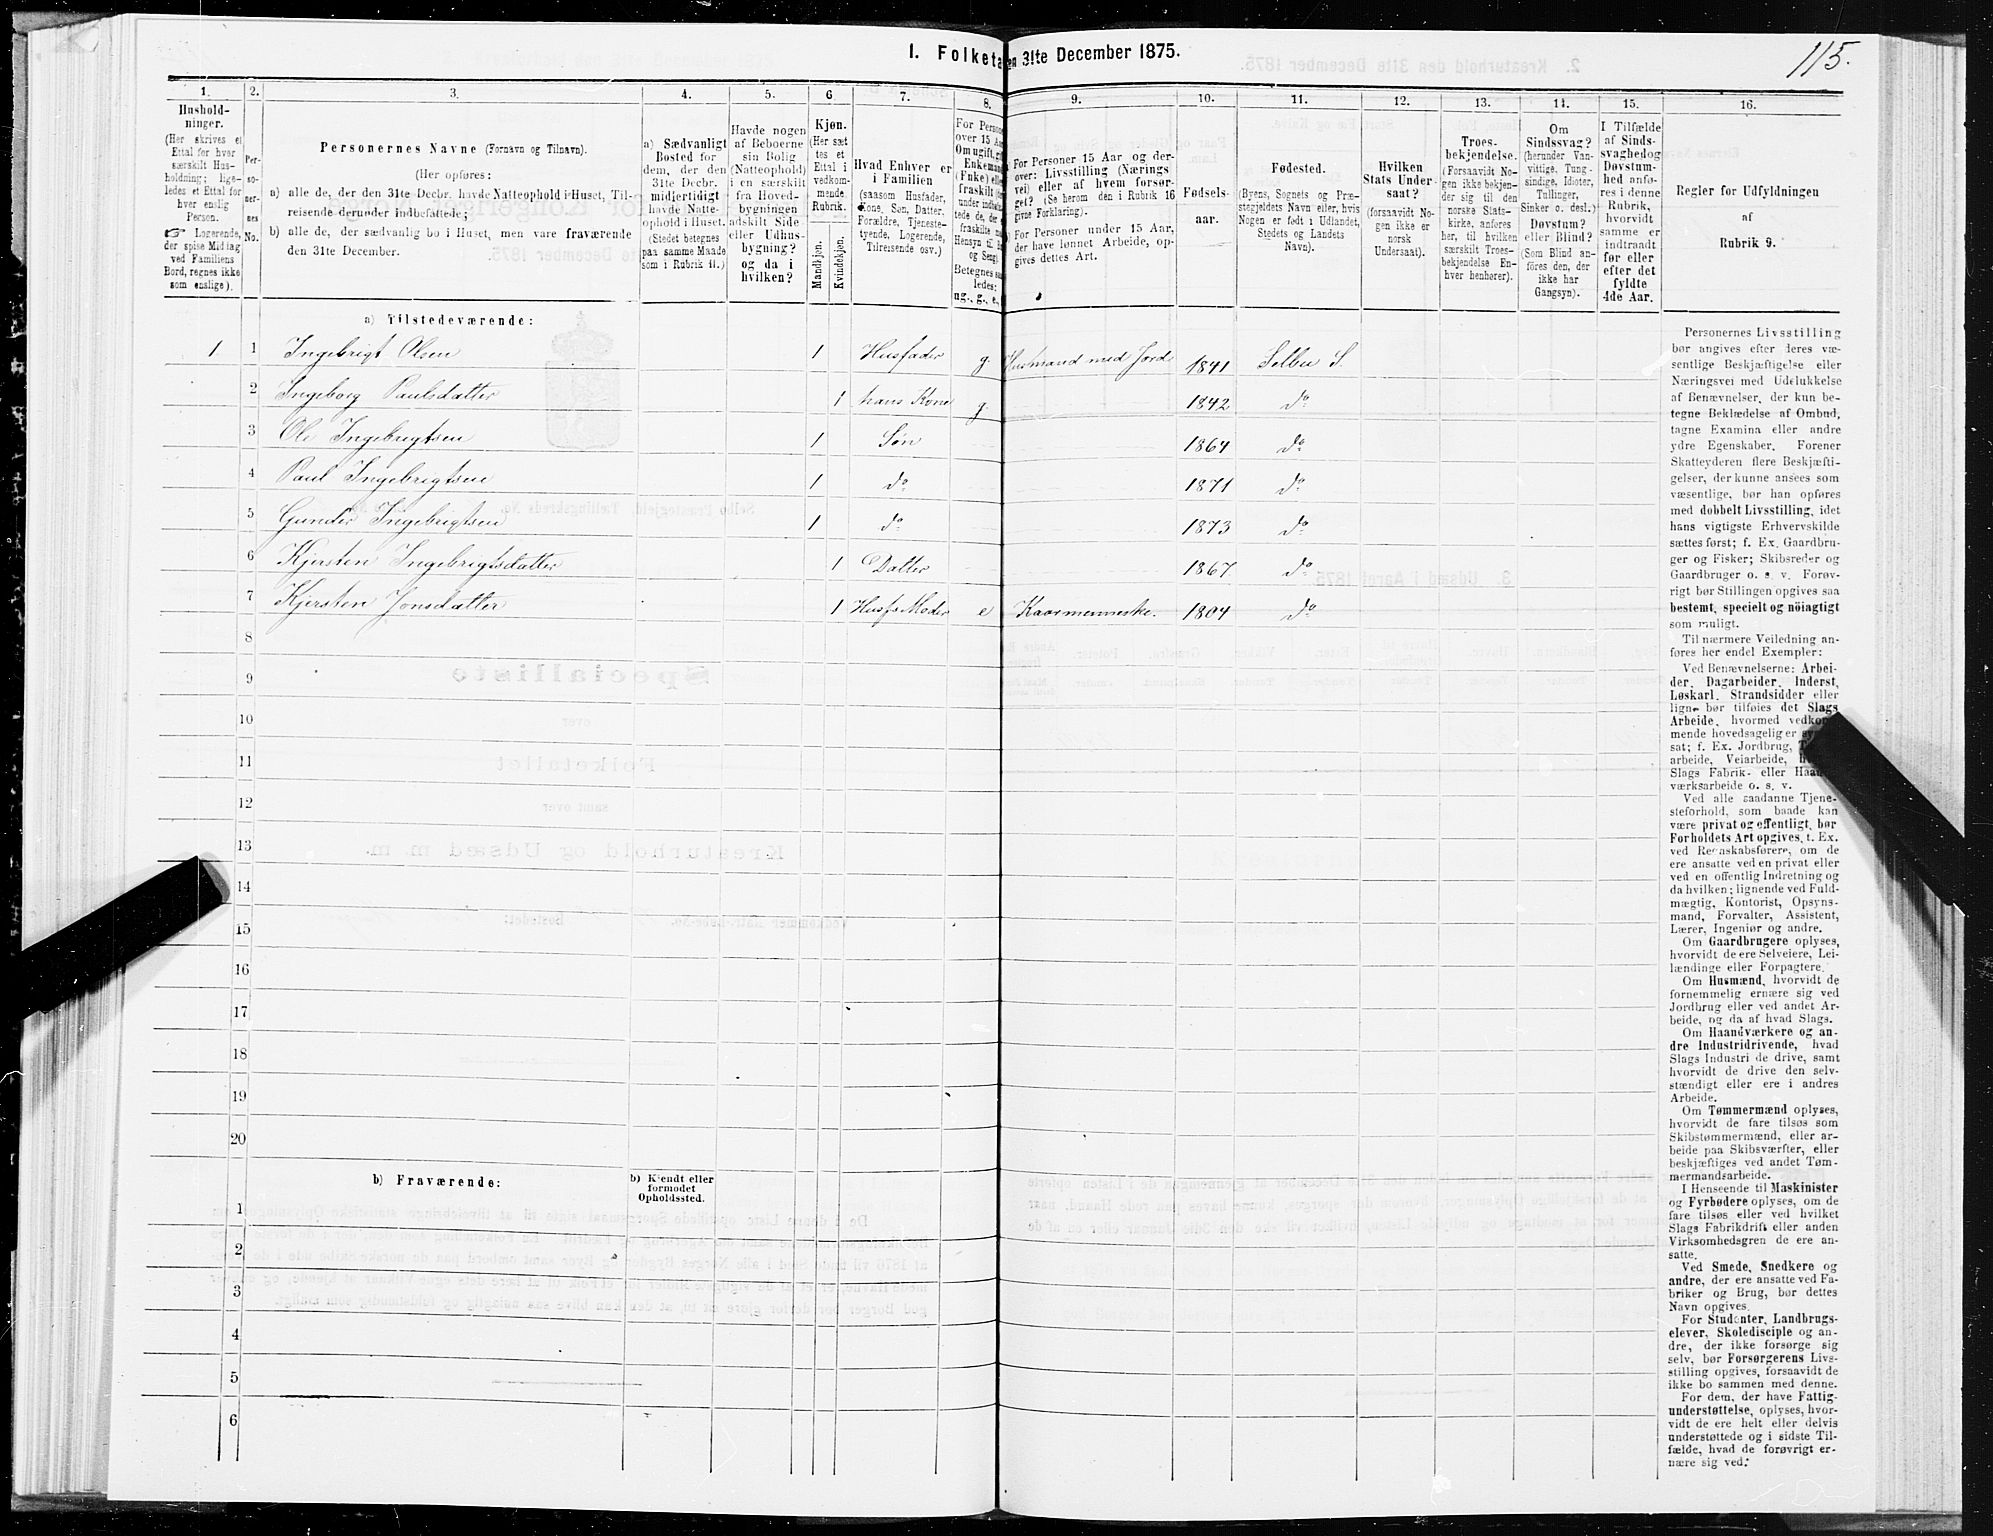 I. Folketa en 31te December 1875.
115.
1.
2.
3.
4.
5.
6
7.
8.
9.
10.
11.
12.
13.
14.
15.
16.
Hushold-
ninger.
(Her skrives et
Ettal for hver
særskilt Hus-
holdning; lige-
ledes et Ettal for
hver enslig
Person.
☞ Logerende,
der spise Middag
ved Familiens
Bord, regnes ikke
som enslige).
Per-
so-
ner-
nes
No.
Personernes Navne (Fornavn og Tilnavn).
(Her opføres:
a) alle de, der den 31te Decbr. havde Natteophold i Huset, Til-
reisende derunder indbefattede;
b) alle de, der sædvanlig bo i Huset, men vare fraværende
den 31te December.
a) Sædvanligt
Bosted for
dem, der den
31te Decbr.
midlertidigt
havde Natte-
ophold i Huset.
(Stedet betegnes
paa samme Maade
som i Rubrik 11.)
Havde nogen
af Beboerne
sin Bolig
(Natteophold)
i en særskilt
fra Hoved-
bygningen
adskilt Side-
eller Udhus-
bygning?
og da i
hvilken?
Kjøn.
(Her sæt
tes et
Ettal i
vedkom-
mende
Rubrik.
Mandkjøn.
Kvindekjøn.
Hvad Enhver er
i Familien
(saasom Husfader,
Kone, Søn, Datter,
Forældre, Tjeneste-
tyende, Logerende,
Tilreisende osv.)
For Perso
over 15 Aa
Om ugift, g
Enkeman
(Fnke) elle
fraskilt
under indbe
tede de, de
fraskilte
Hensyn til B
og Seng)
Betegnes sa
ledes:
ug., g., e.,
For Personer 15 Aar og der-
over: Livsstilling (Nærings
vei) eller af hvem forsør-
get? (Se herom den i Rubrik 16
givne Forklaring).
) For Personer under 15 Aar,
der have lønnet Arbeide, op-
gives dettes Art.
Fødsels-
aar.
Fødested.
(Byens, Sognets og Præ-
stegjeldets Navn eller, hvis
Nogen er født i Udlandet,
Stedets og Landets
Navn).
Hvilken
Stats Under-
saat?
(forsaavidt No-
gen ikke er
norsk
Undersaat).
Troes-
bekjendelse.
(Forsaavidt No-
gen ikke bekjen-
der sig til den
norske Stats-
kirke, anføres
her, til hvilken
særskilt Troes-
bekjendelse En-
hver henhører).
Om
Sindssvag?
(herunder Van-
vittige, Tung-
sindige, Idioter,
Tullinger,
Sinker o. desl.)
Døvstum?
eller Blind?
(Som Blind an-
føres den, der
ikke har
Gangsyn).
I Tilfælde
af Sinds-
svaghedog
Døvstum-
hed anfø-
res i denne
Rubrik,
hvorvidt
samme er
indtraadt
før eller
efter det
fyldte
4de Aar.
Regler for Udfyldningen
af
Rubrik 9.
a) Tilstedeværende:
1 1 Ingebrigt Olsen 1 Husfader g. Husmand med Jord 1841 Selbu S.
2 Ingeborg Paulsdatter 1 hans Kone g. 1842 do
3 Ole Ingebrigtsen 1 Søn 1864 do
4 Paul Ingebrigtsen 1 do 1871 do
5 Gunder Ingebrigtsen 1 do 1873 do
6 Kjersten Ingebrigtsdatter 1 Datter 1867 do
7 Kjersten Jonsdatter 1 Husfs Moder e Kaarmenneske. 1804 do
8
9
10
11
12
13
14
15
16
17
18
19
20
b) Fraværende:
b) Kjendt eller
formodet
Opholdssted.
1
2
3
4
5
6
Personernes Livsstilling
bør angives efter deres væ-
sentlige Beskjæftigelse eller
Næringsvei med Udelukkelse
af Benævnelser, der kun be-
tegne Beklædelse af Ombud,
tagne Examina eller andre
ydre Egenskaber. Forener
Skatteyderen flere Beskjæfti-
gelser, der kunne ansees som
væsentlige, bør han opføres
med dobbelt Livsstilling, idet
hans vigtigste Erhvervskilde
sættes først; f. Ex. Gaardbru-
ger og Fisker; Skibsreder og
Gaardbruger o. s. v. Forøv-
rigt bør Stillingen opgives saa
bestemt, specielt og nöiagtigt
som muligt.
Til nærmere Veiledning an-
føres her endel Exempler:
Ved Benævnelserne: Arbei-
der, Dagarbeider, Inderst,
Løskarl, Strandsidder eller
lign. bør tilføies det Slags
Arbeide, hvormed vedkom-
mende hovedsagelig er
sat; f. Ex. Jordbrug,
arbeide, Veiarbeide,
Slags Fabrik- eller Haand-
værksarbeide o. s. v.
Ved alle saadanne Tjene-
steforhold, som baade kan
være privat og offentligt, bør
Forholdets Art opgives, t. Ex.
ved Regnskabsførere, om de
ere ansatte ved en privat eller
ved en offentlig Indretning og
da hvilken; lignende ved Fuld-
mægtig, Kontorist, Opsyns-
mand, Forvalter, Assistent,
Lærer, Ingeniør og andre.
Om Gaardbrugere oplyses,
hvorvidt de ere Selveiere, Lei-
lændinge eller Forpagtere.
Om Husmænd, hvorvidt de
fornemmelig ernære sig ved
Jordbrug eller ved andet Ar-
beide, og da af hvad Slags.
Om Haandværkere og an-
dre Industridrivende, hvad
Slags Industri de drive, samt
hvorvidt de drive den selv-
stændigt eller ere i andres
Arbeide.
Om Tømmermænd oplyses,
hvorvidt de fare tilsøs som
Skibstømmermænd, eller ar-
beide paa Skibsværfter, eller
beskjæftiges ved andet Tøm-
mermandsarbeide.
I Henseende til Maskinister
og Fyrbødere oplyses, om de
fare tilsøs eller ved hvilket
Slags Fabrikdrift eller anden
Virksomhedsgren de ere an-
satte.
Ved Smede, Snedkere og
andre, der ere ansatte ved Fa-
briker og Brug, bør dettes
Navn opgives.
For Studenter, Landbrugs-
elever, Skoledisciple og an-
dre, der ikke forsørge sig
selv, bør Forsørgerens Livs-
stilling opgives, forsaavidt de
ikke bo sammen med denne.
For dem, der have Fattig-
understøttelse, oplyses, hvor-
vidt de ere helt eller delvis
understøttede og i sidste Til-
fælde, hvad de forøvrigt er-
nære sig ved.